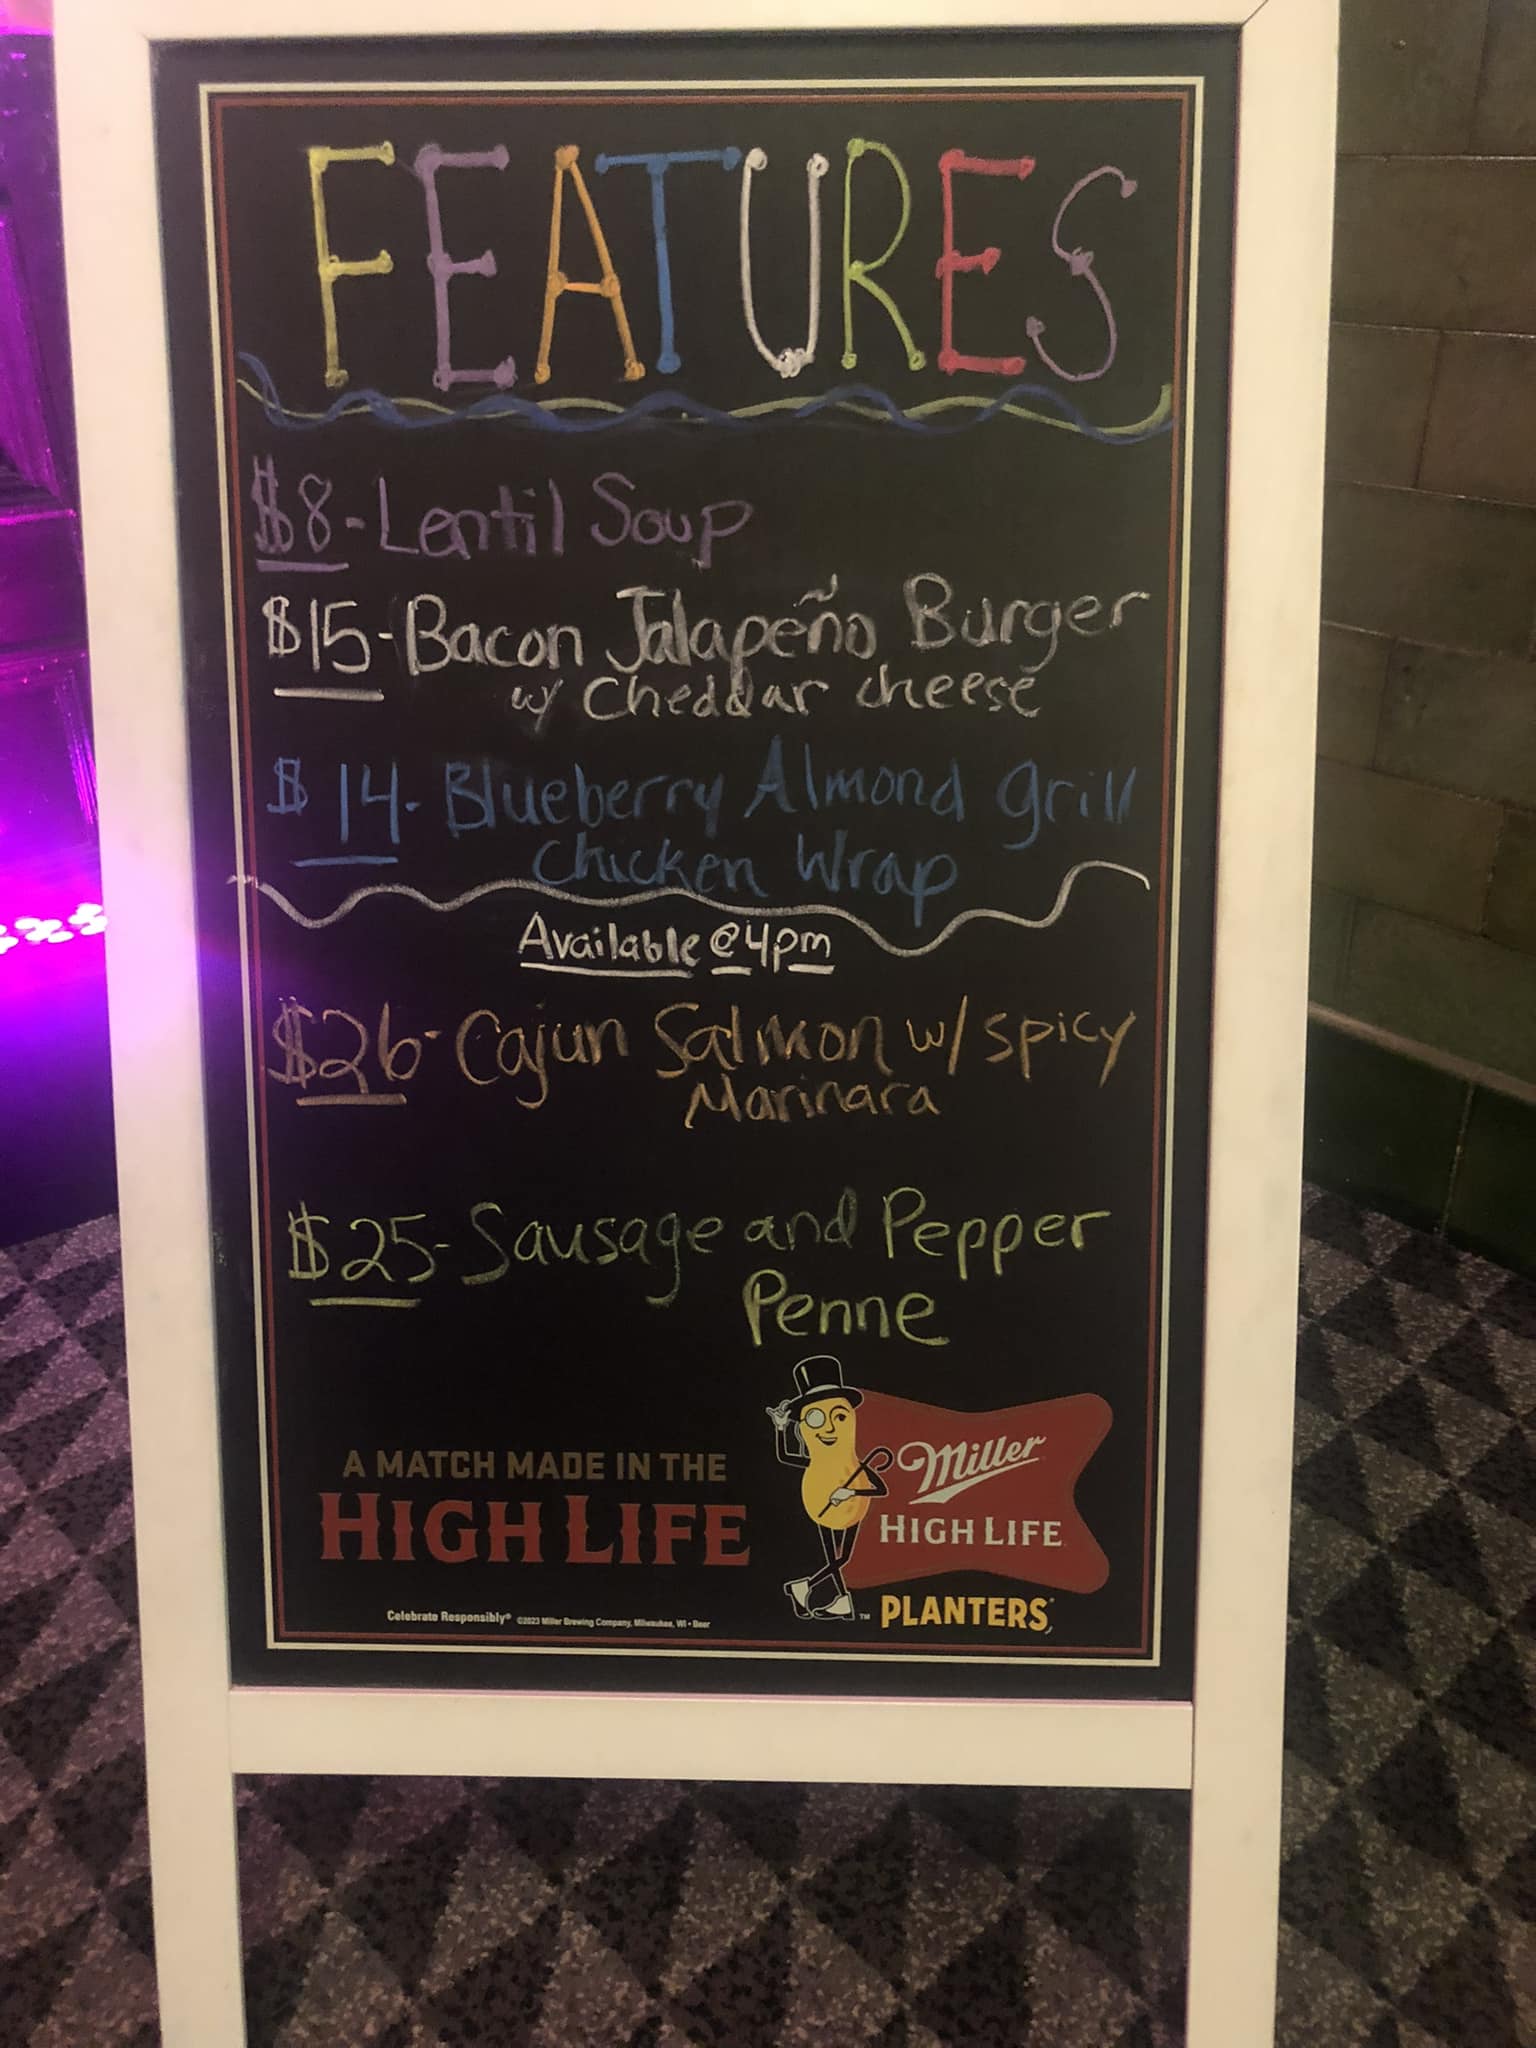 FEATURES
$8-Lentil Soup
$15-Bacon Jalapeño Burger
w/ Cheddar cheese
$14-Blueberry Almond grill
Chicken Wrap
Available @ 4pm
$26-Cajun Salmon w/ spicy
Marinara
$25-Sausage and Pepper
Penne
A MATCH MADE IN THE
HIGH LIFE
Miller
HIGH LIFE
PLANTERS
Celebrate Responsibly® ©2023 Miller Brewing Company, Milwaukee, WI • Beer
™